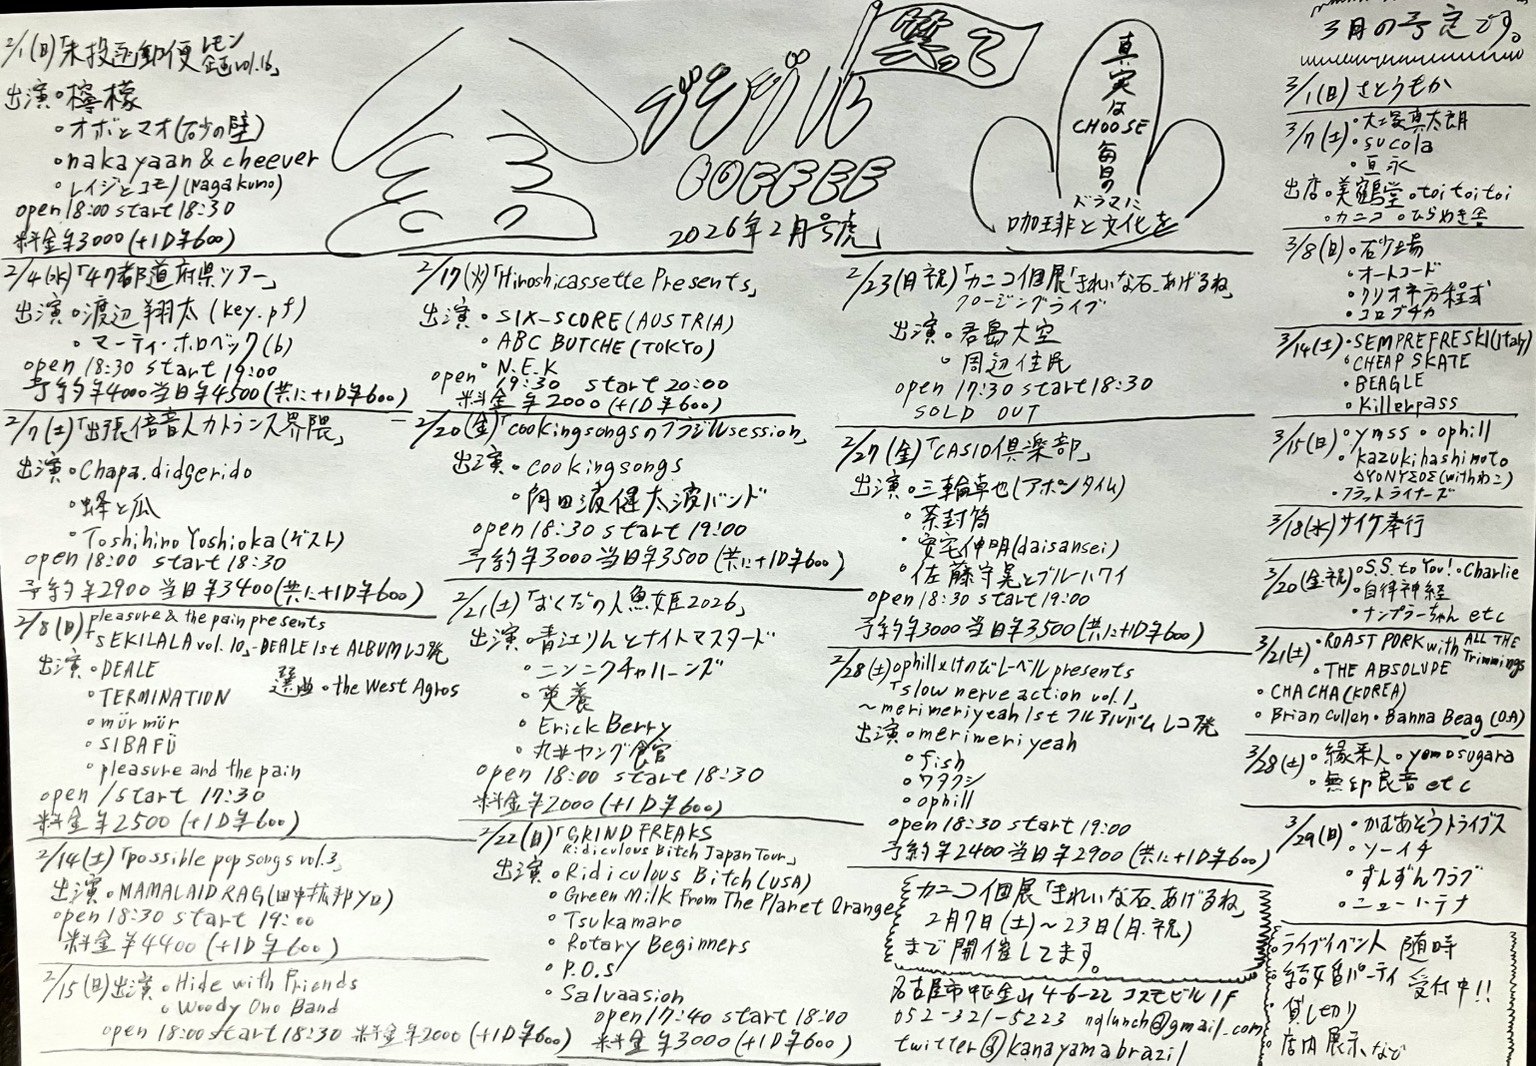 2/1(日)「未投函郵便 レモン企画vol.16」
出演・檸檬
・オボとマオ(砂の壁)
・nakayaan & cheever
・レイジとコモノ(Nagakumo)
open 18:00 start 18:30
料金¥3000(+1D¥600)
2/4(水)「47都道府県ツアー」
出演・渡辺翔太(key.pf)
・マーティ・ホロベック(b)
open 18:30 start 19:00
予約¥4000当日¥4500(共に+1D¥600)
2/7(土)「出張倍音人力トランス界隈」
出演・Chapa.didgerido
・蜂と瓜
・Toshihiro Yoshioka(ゲスト)
open 18:00 start 18:30
予約¥2900当日¥3400(共に+1D¥600)
2/8(日)pleasure & the pain presents
「SEKILALA vol.10」-DEALE 1st ALBUMレコ発
出演・DEALE
・TERMINATION
・mür mür
・SIBAFÜ
・pleasure and the pain
選曲・the West Agros
open/start 17:30
料金¥2500(+1D¥600)
2/14(土)「possible pop songs vol.3」
出演・MAMALAID RAG(田中拡邦ソロ)
open 18:30 start 19:00
料金¥4400(+1D¥600)
2/15(日)出演・Hide with Friends
・Woody Ono Band
open 18:00 start 18:30 料金¥2000(+1D¥600)
金
ブラジル
COFFEE
2026年2月号虎」
真実は
CHOOSE
毎日の
ドラマに
珈琲と文化を
2/17(火)「Hiroshicassette Presents」
出演・SIX-SCORE(AUSTRIA)
・ABC BUTCHE(TOKYO)
・N.E.K
open 19:30 start 20:00
料金¥2000(+1D¥600)
2/20(金)「cookingsongsのブラジルsession」
出演・cookingsongs
・角田波健太波バンド
open 18:30 start 19:00
予約¥3000当日¥3500(共に+1D¥600)
2/21(土)「おくだの人魚姫2026」
出演・青江りんとナイトマスタード
・ニンニクチャハーンズ
・英養
・Erick Berry
・丸井ヤング館
open 18:00 start 18:30
料金¥2000(+1D¥600)
2/22(日)「GRIND FREAKS
Ridiculous Bitch Japan Tour」
出演・Ridiculous Bitch(USA)
・Green Milk From The Planet Orange
・Tsukamaro
・Rotary Beginners
・P.O.S
・Salvaasion
open 17:40 start 18:00
料金¥3000(+1D¥600)
2/23(月祝)「カニコ個展「きれいな石、あげるね」
クロージングライブ
出演・君島大空
・周辺住民
open 17:30 start 18:30
SOLD OUT
2/27(金)「CASIO倶楽部」
出演・三輪卓也(アポンタイム)
・茶封筒
・安宅伸明(daisansei)
・佐藤宇晃とブルーハワイ
open 18:30 start 19:00
予約¥3000当日¥3500(共に+1D¥600)
2/28(土)ophill×けのびレーベル presents
「slow nerve action vol.1」
~merimeriyeah 1stフルアルバムレコ発
出演・merimeriyeah
・fish
・ワタクシ
・ophill
open 18:30 start 19:00
予約¥2400当日¥2900(共に+1D¥600)
カニコ個展「きれいな石、あげるね」
2月7日(土)~23日(月.祝)
まで開催してます。
名古屋市中区金山4-6-22 コスモビル1F
052-321-5223 nqlunch@gmail.com
twitter@kanayamabrazil
3月の予定です。
3/1(日)さとうもか
3/7(土)・大塚真太朗
・sucola
・亘永
出店・美鶴堂・toitoitoi
・カニコ・ひらめき舎
3/8(日)・砂場
・オートコード
・クリオネ方程式
・コロブチカ
3/14(土)・SEMPREFRESKI(Italy)
・CHEAP SKATE
・BEAGLE
・Killerpass
3/15(日)・ymss・ophill
・kazukihashimoto
ΔYONYΣOΣ(withわこ)
・フラットライナーズ
3/18(水)サイケ奉行
3/20(金祝)・S.S. to You!・Charlie
・自律神経
・ナンプラーちゃん etc
3/21(土)・ROAST PORK with ALL THE Trimmings
・THE ABSOLUDE
・CHACHA(KOREA)
・Brian Cullen・Banna Beag(O.A)
3/28(土)・縁来人・yomosugara
・無印良音 etc
3/29(日)・かむあそうトライブス
・ソーイチ
・ずんずんクラブ
・ニュートーテナ
ライブイベント
結婚パーティ
貸し切り
店内展示、など
随時
受付中!!